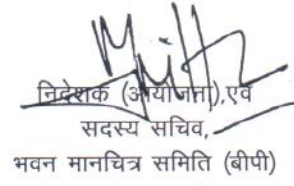 निदेशक (आयोजना),एवं
सदस्य सचिव,
भवन मानचित्र समिति (बीपी)